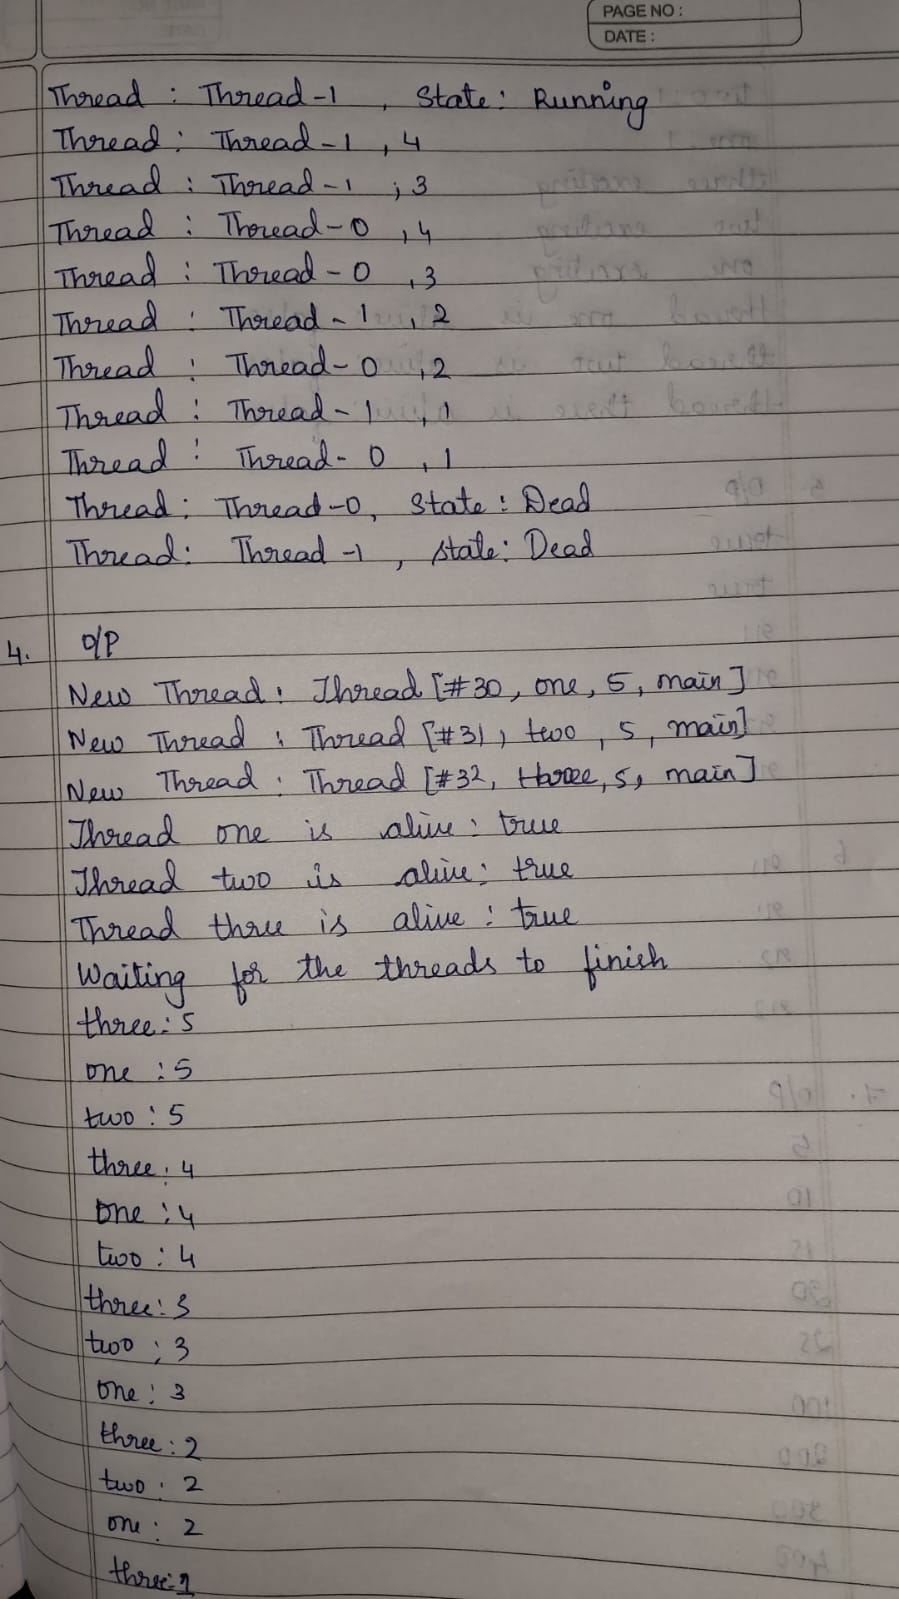 PAGE NO :
DATE :
Thread : Thread-1 , State: Running
Thread : Thread-1 , 4
Thread : Thread-1 , 3
Thread : Thread-0 , 4
Thread : Thread-0 , 3
Thread : Thread-1 , 2
Thread : Thread-0 , 2
Thread : Thread-1 , 1
Thread : Thread-0 , 1
Thread: Thread-0, State: Dead
Thread: Thread-1, state: Dead
4. O/P
New Thread: Thread [#30, one, 5, main]
New Thread : Thread [#31, two, 5, main]
New Thread : Thread [#32, three, 5, main]
Thread one is alive: true
Thread two is alive: true
Thread three is alive: true
Waiting for the threads to finish
three: 5
one : 5
two : 5
three: 4
one : 4
two : 4
three: 3
two : 3
one : 3
three: 2
two : 2
one : 2
three: 1